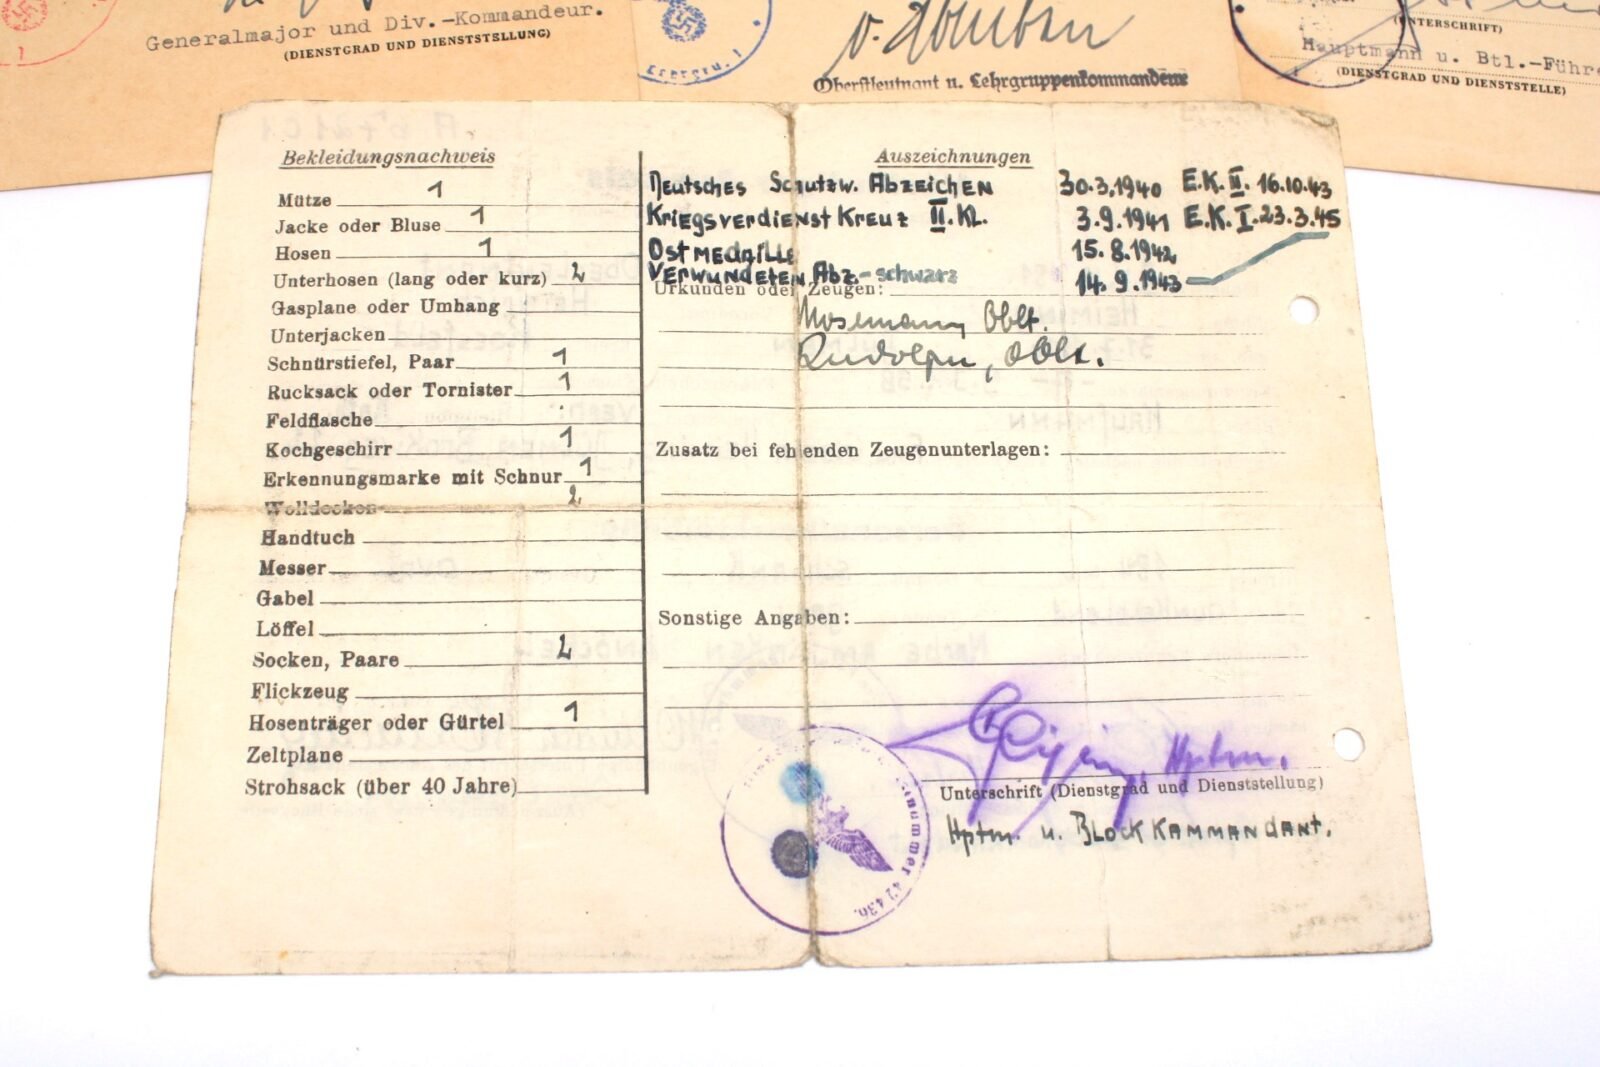 Generalmajor und Div.-Kommandeur.
(DIENSTGRAD UND DIENSTSTELLUNG)
Oberstleutnant u. Lehrgruppenkommandeur
(UNTERSCHRIFT)
Hauptmann u. Btl.-Führe
(DIENSTGRAD UND DIENSTSTELLE)
Bekleidungsnachweis
Mütze 1
Jacke oder Bluse 1
Hosen 1
Unterhosen (lang oder kurz) 2
Gasplane oder Umhang
Unterjacken
Schnürstiefel, Paar 1
Rucksack oder Tornister 1
Feldflasche
Kochgeschirr 1
Erkennungsmarke mit Schnur 1
Wolldecken 2
Handtuch
Messer
Gabel
Löffel
Socken, Paare 2
Flickzeug
Hosenträger oder Gürtel 1
Zeltplane
Strohsack (über 40 Jahre)
Auszeichnungen
Deutsches Schutzw. Abzeichen 30.3.1940 E.K. II. 16.10.43
Kriegsverdienst Kreuz II. Kl. 3.9.1941 E.K. I. 23.3.45
Ostmedaille 15.8.1942
Verwundeten Abz.-schwarz 14.9.1943
Urkunden oder Zeugen:
Mosemann, Oblt.
Rudolph, Oblt.
Zusatz bei fehlenden Zeugenunterlagen:
Sonstige Angaben:
Hptm.
Unterschrift (Dienstgrad und Dienststellung)
Hptm. u. Blockkammandant.